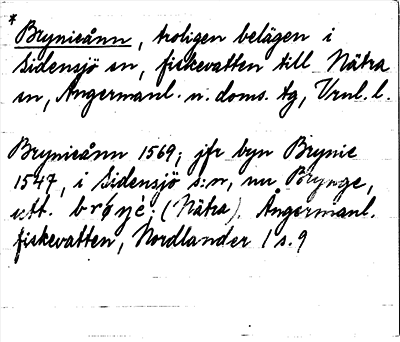 * Brynieånn, troligen belägen i
Sidensjö sn, fiskevatten till Nätra
sn, Ångermanl. n. doms. tg, Vrnl. l.
Brynieånn 1569; jfr byn Brynie
1547, i Sidensjö s:n, nu Brynge,
utt. (Nätra). Ångermanl.
fiskevatten, Nordlander 1 s. 9